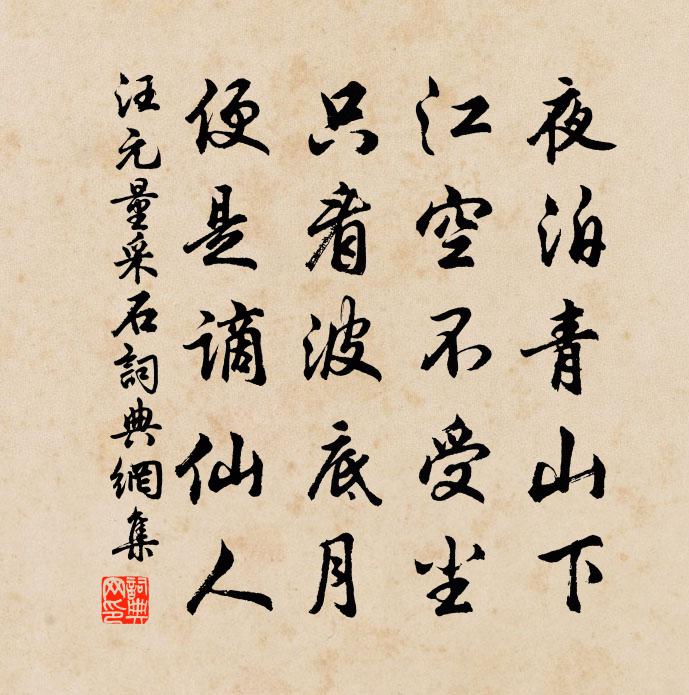 夜泊青山下
江空不受尘
只看波底月
便是谪仙人
汪元量采石詞典網集
詞典网印